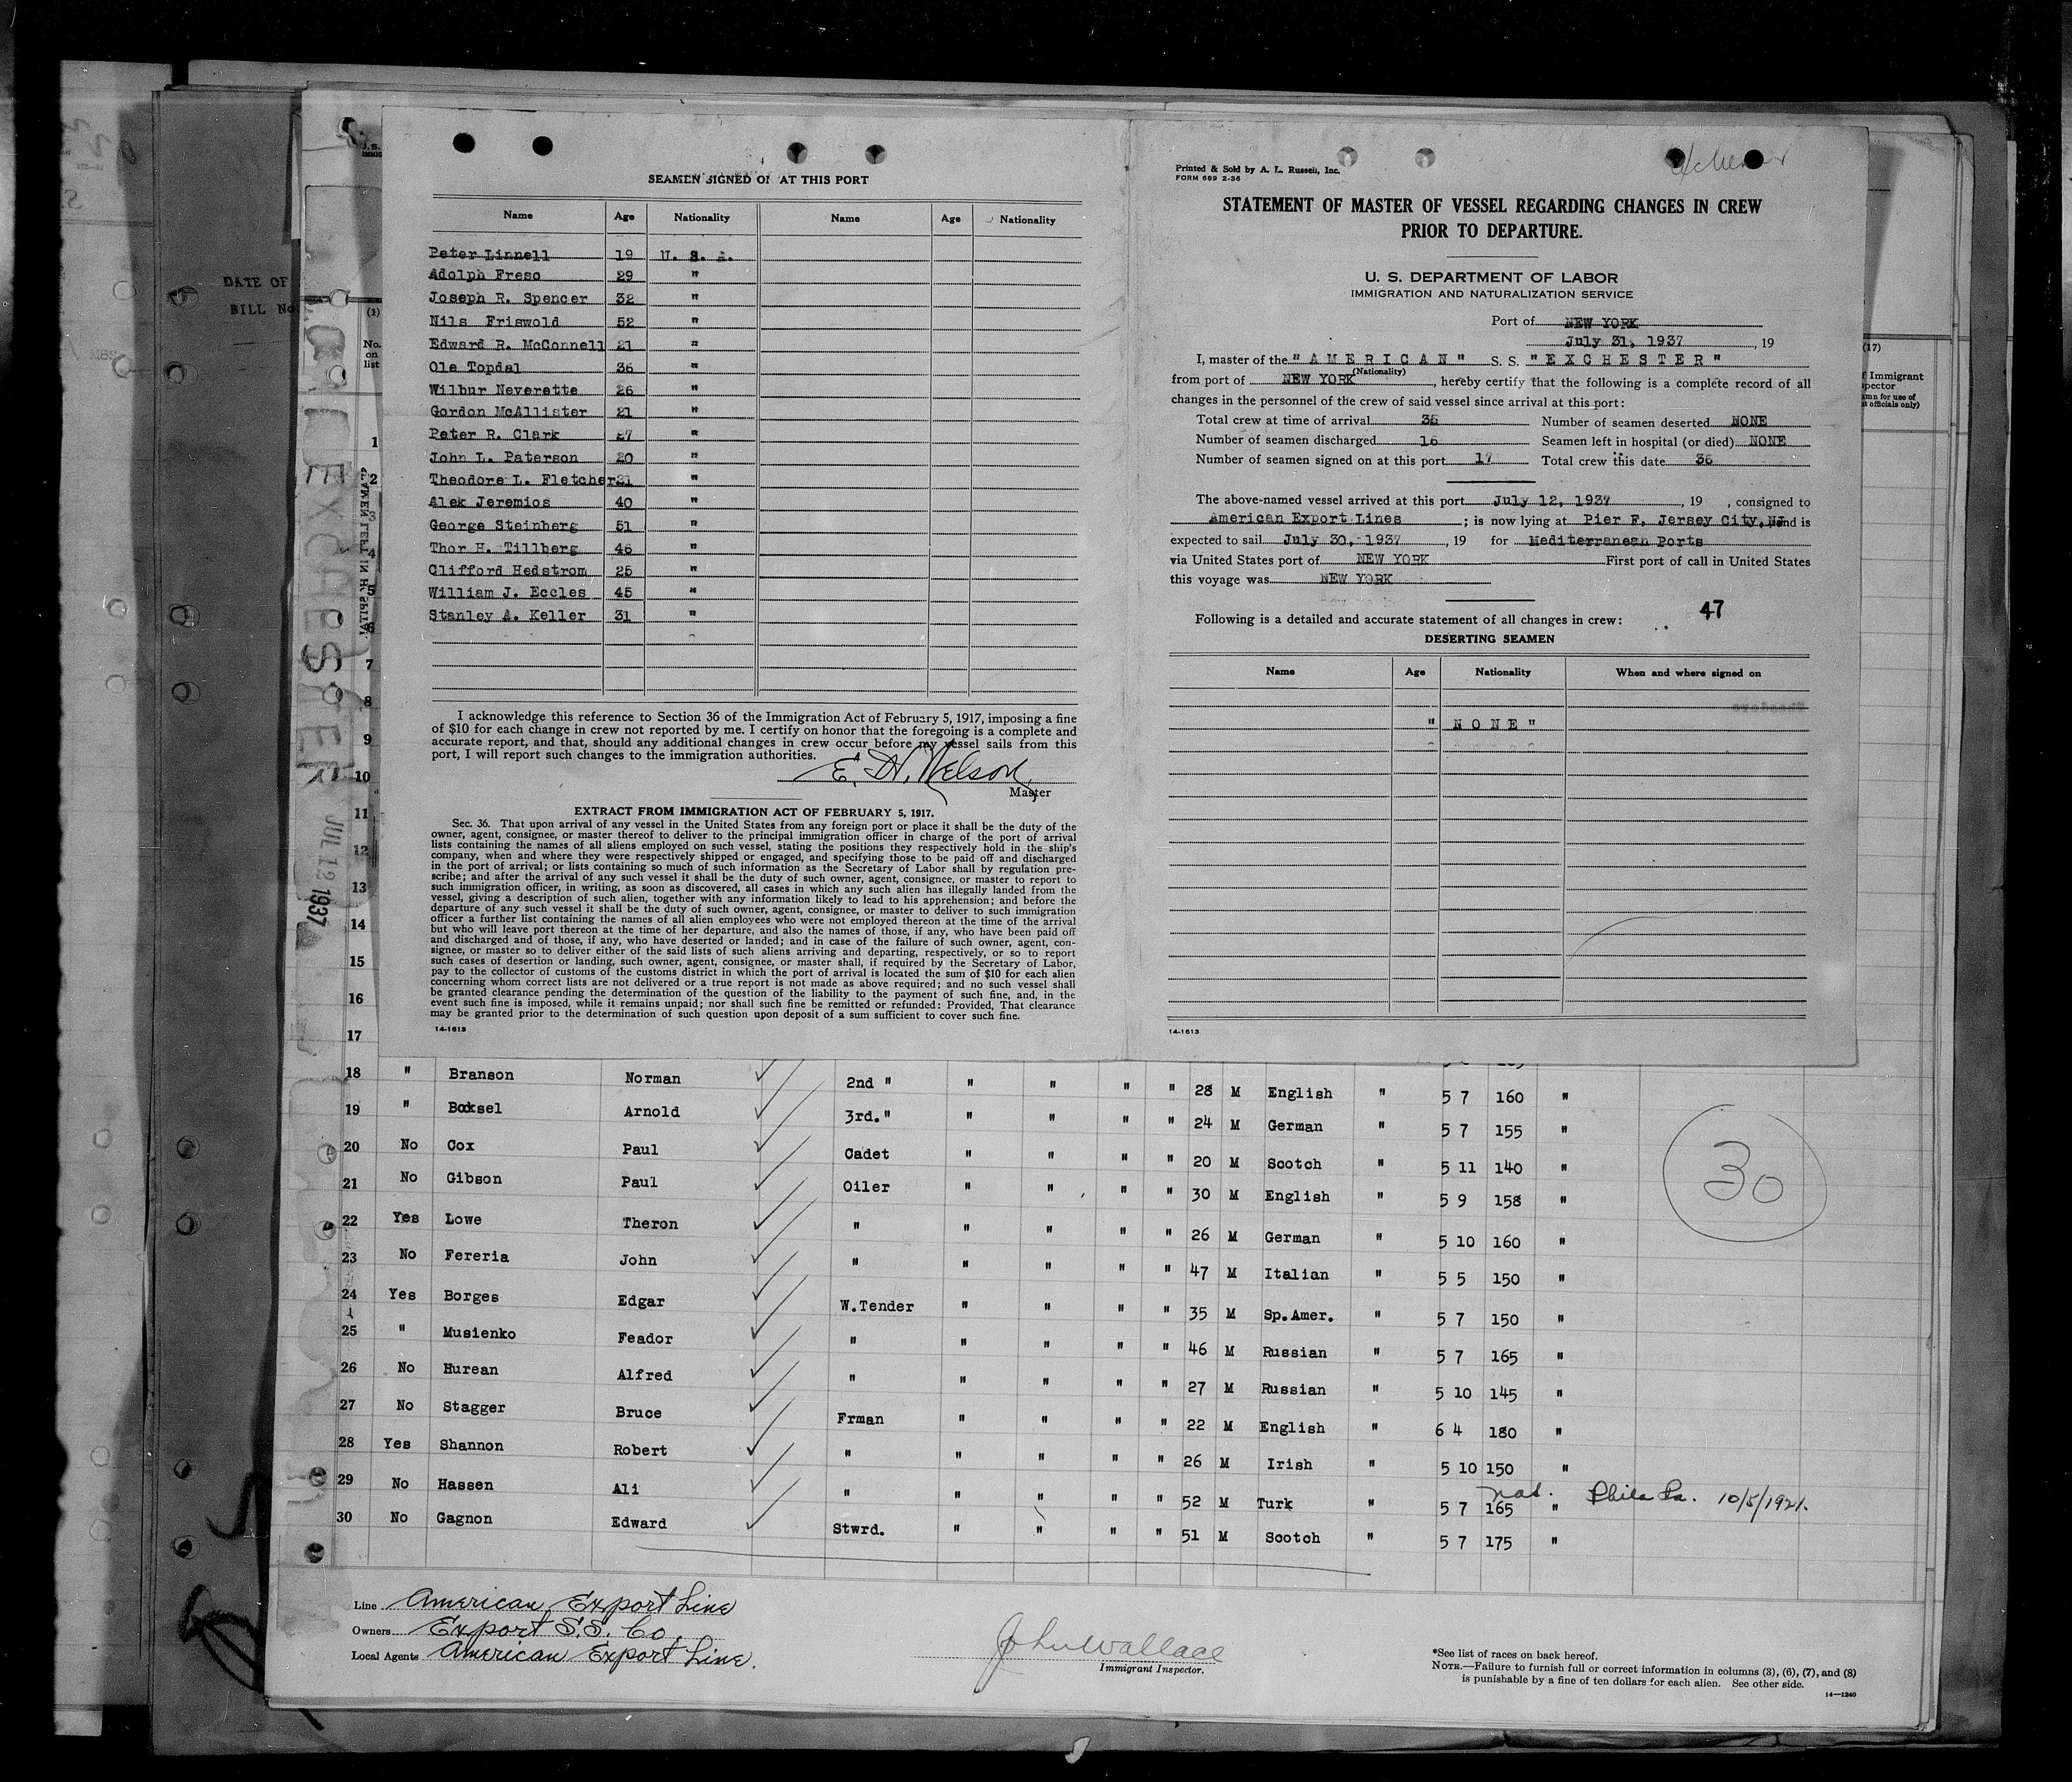 SEAMEN SIGNED ON AT THIS PORT
Name Age Nationality Name Age Nationality
Peter Linnell 19 U. S. A.
Adolph Freso 29 "
Joseph R. Spencer 32 "
Nils Friswold 52 "
Edward R. McConnell 21 "
Ole Topdal 36 "
Wilbur Neverette 26 "
Gordon McAllister 21 "
Peter R. Clark 27 "
John L. Paterson 20 "
Theodore L. Fletcher 21 "
Alex Jeremios 40 "
George Steinberg 51 "
Thor H. Tillberg 46 "
Clifford Hedstrom 25 "
William J. Eccles 45 "
Stanley A. Keller 31 "
I acknowledge this reference to Section 36 of the Immigration Act of February 5, 1917, imposing a fine
of $10 for each change in crew not reported by me. I certify on honor that the foregoing is a complete and
accurate report, and that, should any additional changes in crew occur before my vessel sails from this
port, I will report such changes to the immigration authorities.
E. H. Nelson
Master
EXTRACT FROM IMMIGRATION ACT OF FEBRUARY 5, 1917.
Sec. 36. That upon arrival of any vessel in the United States from any foreign port or place it shall be the duty of the
owner, agent, consignee, or master thereof to deliver to the principal immigration officer in charge of the port of arrival
lists containing the names of all aliens employed on such vessel, stating the positions they respectively hold in the ship's
company, when and where they were respectively shipped or engaged, and specifying those to be paid off and discharged
in the port of arrival; or lists containing so much of such information as the Secretary of Labor shall by regulation pre-
scribe; and after the arrival of any such vessel it shall be the duty of such owner, agent, consignee, or master to report to
such immigration officer, in writing, as soon as discovered, all cases in which any such alien has illegally landed from the
vessel, giving a description of such alien, together with any information likely to lead to his apprehension; and before the
departure of any such vessel it shall be the duty of such owner, agent, consignee, or master to deliver to such immigration
officer a further list containing the names of all alien employees who were not employed thereon at the time of the arrival
but who will leave port thereon at the time of her departure, and also the names of those, if any, who have been paid off
and discharged and of those, if any, who have deserted or landed; and in case of the failure of such owner, agent, con-
signee, or master so to deliver either of the said lists of such aliens arriving and departing, respectively, or so to report
such cases of desertion or landing, such owner, agent, consignee, or master shall, if required by the Secretary of Labor,
pay to the collector of customs of the customs district in which the port of arrival is located the sum of $10 for each alien
concerning whom correct lists are not delivered or a true report is not made as above required; and no such vessel shall
be granted clearance pending the determination of the question of the liability to the payment of such fine, and, in the
event such fine is imposed, while it remains unpaid; nor shall such fine be remitted or refunded: Provided, That clearance
may be granted prior to the determination of such question upon deposit of a sum sufficient to cover such fine.
14-1613
Printed & Sold by A. L. Russell, Inc.
FORM 689 2-36
STATEMENT OF MASTER OF VESSEL REGARDING CHANGES IN CREW
PRIOR TO DEPARTURE.
U. S. DEPARTMENT OF LABOR
IMMIGRATION AND NATURALIZATION SERVICE
Port of NEW YORK
July 31, 1937, 19
I, master of the "AMERICAN" S. S. "EXCHESTER"
(Nationality)
from port of NEW YORK, hereby certify that the following is a complete record of all
changes in the personnel of the crew of said vessel since arrival at this port:
Total crew at time of arrival 35 Number of seamen deserted NONE
Number of seamen discharged 16 Seamen left in hospital (or died) NONE
Number of seamen signed on at this port 17 Total crew this date 36
The above-named vessel arrived at this port July 12, 1937, 19 , consigned to
American Export Lines; is now lying at Pier F, Jersey City, NJ and is
expected to sail July 30, 1937, 19 for Mediterranean Ports
via United States port of NEW YORK First port of call in United States
this voyage was NEW YORK
47
Following is a detailed and accurate statement of all changes in crew:
DESERTING SEAMEN
Name Age Nationality When and where signed on
" N O N E "
14-1613
DATE OF
BILL No.
EXCHESTER JUL 12 1937
(1)
No.
on
list
(17)
1
2
3
4
5
6
7
8
9
10
11
12
13
14
15
16
17
18 " Branson Norman 2nd " " " " " 28 M English " 5 7 160 "
19 " Boksel Arnold 3rd." " " " " 24 M German " 5 7 155 "
20 No Cox Paul Cadet " " " " 20 M Scotch " 5 11 140 "
21 No Gibson Paul Oiler " " " " 30 M English " 5 9 158 "
22 Yes Lowe Theron " " " " " 26 M German " 5 10 160 "
23 No Fereria John " " " " " 47 M Italian " 5 5 150 "
24 Yes Borges Edgar W.Tender " " " " 35 M Sp.Amer. " 5 7 150 "
25 " Musienko Feador " " " " " 46 M Russian " 5 7 165 "
26 No Hurean Alfred " " " " " 27 M Russian " 5 10 145 "
27 No Stagger Bruce Frman " " " " 22 M English " 6 4 180 "
28 Yes Shannon Robert " " " " " 26 M Irish " 5 10 150 "
29 No Hassen Ali " " " " " 52 M Turk " 5 7 165 " nat. Phila Pa. 10/5/1921.
30 No Gagnon Edward Stwrd. " " " " 51 M Scotch " 5 7 175 "
30
Line American Export Line
Owners Export S.S. Co.
Local Agents American Export Line.
John Wallace
Immigrant Inspector.
*See list of races on back hereof.
NOTE.—Failure to furnish full or correct information in columns (3), (6), (7), and (8)
is punishable by a fine of ten dollars for each alien. See other side.
14—1240